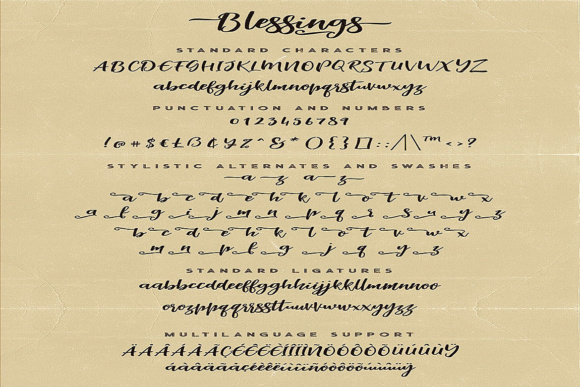 Blessings
STANDARD CHARACTERS
ABCDEFGHIJKLMNOPQRSTUVWXYZ
abcdefghijklmnopqrstuvwxyz
PUNCTUATION AND NUMBERS
0123456789
!@#$€£ß₡¥Z^&*(){}[]::/|\™<>?
STYLISTIC ALTERNATES AND SWASHES
a z a z
a b c d e h k l o t v w x
a l g i j m n p q r s u y z
b c d e h k l o t v w x
m n p l g j q y z
STANDARD LIGATURES
aabbccddeeffgghhiijjkkllmmnnoo
orozppqqrrssttuuvvwwxxyyzz
MULTILANGUAGE SUPPORT